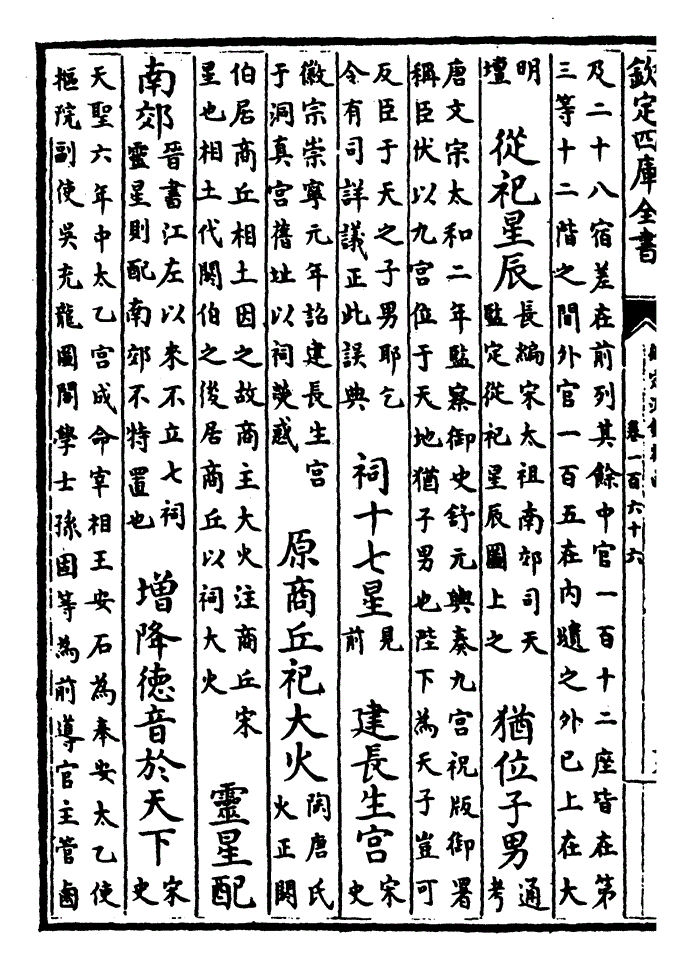 欽定四庫全書
卷一百六十六
及二十八宿差在前列其餘中官一百十二座皆在第
三等十二階之間外官一百五在内壝之外已上在大
明
壇
從祀星辰
長編宋太祖南郊司天
監定從祀星辰圖上之
猶位子男
通
考
唐文宗太和二年監察御史舒元輿奏九宮祝版御署
稱臣伏以九宮位于天地猶子男也陛下為天子豈可
反臣于天之子男耶乞
令有司詳議正此誤典
祠十七星
見
前
建長生宫
宋
史
徽宗崇寧元年詔建長生宫
于洞真宫舊址以祠熒惑
原商丘祀大火
陶唐氏
火正閼
伯居商丘相土因之故商主大火注商丘宋
星也相土代閼伯之後居商丘以祠大火
靈星配
南郊
晉書江左以來不立七祠
靈星則配南郊不特置也
增降德音於天下
宋
史
天聖六年中太乙宮成命宰相王安石為奉安太乙使
樞院副使吳充龍圖閣學士孫固等為前導官主管鹵